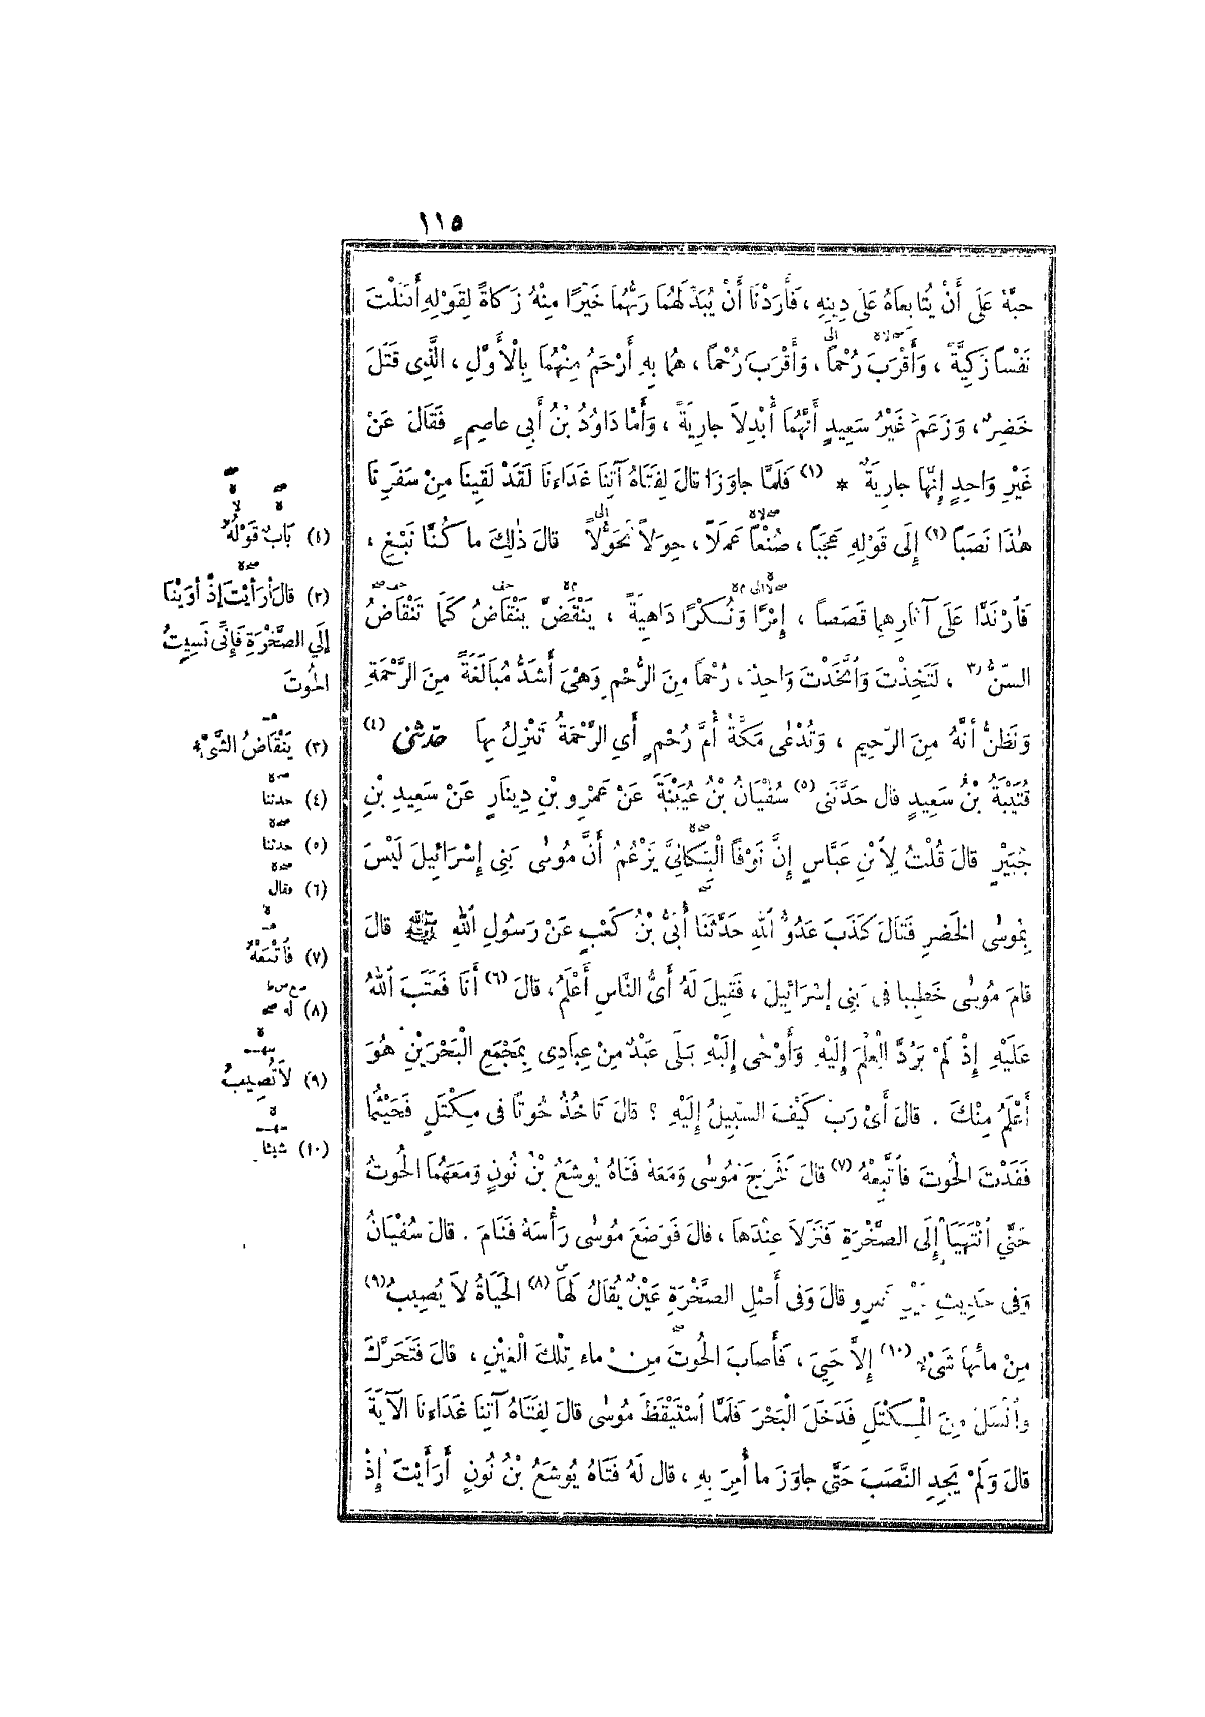 ١١٥
حبُّهُ عَلَى أَنْ يُتَابِعَاهُ عَلَى دِينِهِ ، فَأَرَدْنَا أَنْ يُبَدِّلَهُمَا رَبُّهُمَا خَيْرًا مِنْهُ زَكَاةً لِقَوْلِهِ أَقَتَلْتَ
نَفْسًا زَكِيَّةً ، وَأَقْرَبَ رُحْمًا ، وَأَقْرَبَ رُحْمًا ، هُمَا بِهِ أَرْحَمُ مِنْهُمَا بِالْأَوَّلِ ، الَّذِى قَتَلَ
خَضِرٌ ، وَزَعَمَ غَيْرُ سَعِيدٍ أَنَّهُمَا أُبْدِلاَ جارِيَةً ، وَأَمَّا دَاوُدُ بْنُ أَبِى عاصِمٍ فَقَالَ عَنْ
غَيْرِ وَاحِدٍ إِنَّهَا جارِيَةٌ * (١) فَلَمَّا جاوَزَا قالَ لِفَتَاهُ آتِنَا غَدَاءَنَا لَقَدْ لَقِينَا مِنْ سَفَرِنَا
هٰذَا نَصَبًا (٢) إِلَى قَوْلِهِ عَجَبًا ، صُنْعًا عَمَلاً ، حِوَلاً تَحَوُّلاً قالَ ذٰلِكَ ما كُنَّا نَبْغِ ،
فَارْتَدَّا عَلَى آثارِهِمَا قَصَصًا ، إِمْرًا وَنُكْرًا دَاهِيَةً ، يَنْقَضَّ يَنْقَاضُ كَمَا تَنْقَاضُ
السِّنُّ (٣) ، لَتَخِذْتَ وَاتَّخَذْتَ وَاحِدٌ ، رُحْمًا مِنَ الرُّحْمِ وَهْىَ أَشَدُّ مُبَالَغَةً مِنَ الرَّحْمَةِ
وَنَظُنُّ أَنَّهُ مِنَ الرَّحِيمِ ، وَتُدْعَى مَكَّةُ أُمَّ رُحْمٍ أَىِ الرَّحْمَةُ تَنْزِلُ بِهَا حدّثنى (٤)
قُتَيْبَةُ بْنُ سَعِيدٍ قالَ حَدَّثَنِى (٥) سُفْيَانُ بْنُ عُيَيْنَةَ عَنْ عَمْرِو بْنِ دِينَارٍ عَنْ سَعِيدِ بْنِ
جُبَيْرٍ قالَ قُلْتُ لِاْبْنِ عَبَّاسٍ إِنَّ نَوْفًا الْبَكَالِىَّ يَزْعُمُ أَنَّ مُوسَى بَنِى إِسْرَائِيلَ لَيْسَ
بِمُوسَى الخَضِرِ فَقَالَ كَذَبَ عَدُوُّ اللهِ حَدَّثَنَا أُبَىُّ بْنُ كَعْبٍ عَنْ رَسُولِ اللهِ ﷺ قالَ
قامَ مُوسَى خَطِيبًا فِى بَنِى إِسْرَائِيلَ ، فَقِيلَ لَهُ أَىُّ النَّاسِ أَعْلَمُ ، قالَ (٦) أَنَا فَعَتَبَ اللهُ
عَلَيْهِ إِذْ لَمْ يَرُدَّ الْعِلْمَ إِلَيْهِ وَأَوْحَى إِلَيْهِ بَلَى عَبْدٌ مِنْ عِبَادِى بِمَجْمَعِ الْبَحْرَيْنِ هُوَ
أَعْلَمُ مِنْكَ . قالَ أَىْ رَبِّ كَيْفَ السَّبِيلُ إِلَيْهِ ؟ قالَ تَأْخُذُ حُوتًا فِى مِكْتَلٍ فَحَيْثُمَا
فَقَدْتَ الحُوتَ فَاتَّبِعْهُ (٧) قالَ فَخَرَجَ مُوسَى وَمَعَهُ فَتَاهُ يُوشَعُ بْنُ نُونٍ وَمَعَهُمَا الحُوتُ
حَتَّى انْتَهَيَا إِلَى الصَّخْرَةِ فَنَزَلاَ عِنْدَهَا ، قالَ فَوَضَعَ مُوسَى رَأْسَهُ فَنَامَ . قالَ سُفْيَانُ
وَفِى حَدِيثِ غَيْرِ عَمْرٍو قالَ وَفِى أَصْلِ الصَّخْرَةِ عَيْنٌ يُقَالُ لَهَا (٨) الحَيَاةُ لاَ يُصِيبُ (٩)
مِنْ مائِهَا شَىْءٌ (١٠) إِلاَّ حَيِىَ ، فَأَصَابَ الحُوتَ مِنْ ماءِ تِلْكَ الْعَيْنِ ، قالَ فَتَحَرَّكَ
وَانْسَلَّ مِنَ الْمِكْتَلِ فَدَخَلَ الْبَحْرَ فَلَمَّا اسْتَيْقَظَ مُوسَى قالَ لِفَتَاهُ آتِنَا غَدَاءَنَا الآيَةَ
قالَ وَلَمْ يَجِدِ النَّصَبَ حَتَّى جاوَزَ ما أُمِرَ بِهِ ، قالَ لَهُ فَتَاهُ يُوشَعُ بْنُ نُونٍ أَرَأَيْتَ إِذْ
(١) بَابُ قَوْلُهُ
(٢) قالَ أَرَأَيْتَ إِذْ أَوَيْنَا
إِلَى الصَّخْرَةِ فَإِنِّى نَسِيتُ
الحُوتَ
(٣) يَنْقَاضُ الشَّىْءُ
(٤) حدثنا
(٥) حدثنا
(٦) فقال
(٧) فَاتَّبَعَهُ
(٨) له
(٩) لاَ تُصِيبُ
(١٠) شيئا